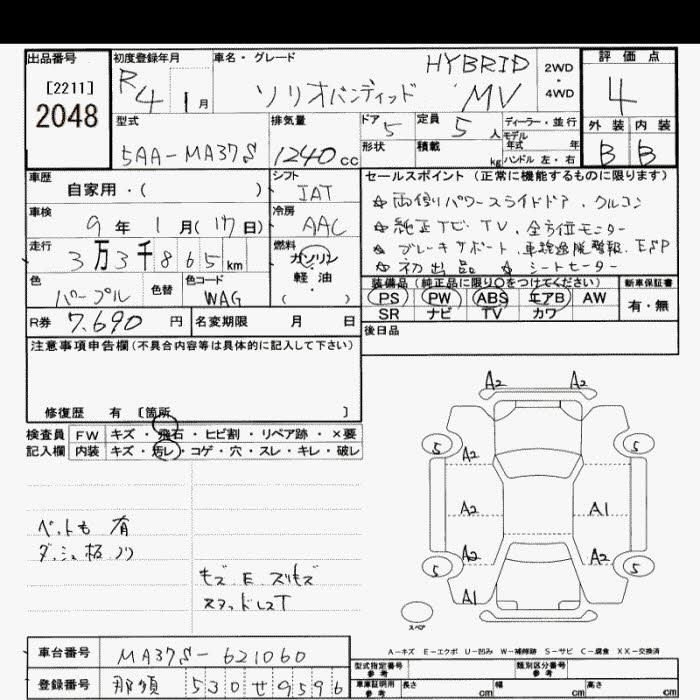 出品番号
[2211]
2048
初度登録年月
R4 1月
車名・グレード
ソリオバンディッド HYBRID MV
2WD・4WD
評価点
4
外装 内装
B B
型式
5AA-MA37S
排気量
1240cc
ドア 5
形状
定員 5人
積載 kg
ディーラー・並行
モデル年式 年
ハンドル 左・右
車歴
自家用・( )
シフト
IAT
セールスポイント(正常に機能するものに限ります)
☆両側パワースライドドア、クルコン
☆純正ナビ TV、全方位モニター
☆ブレーキサポート、車線逸脱警報、ESP
☆初出品 ☆シートヒーター
車検
9年 1月(17日)
冷房
AAC
走行
3万3千865km
燃料
ガソリン
軽・油
・( )
色
パープル
色替
色コード
WAG
装備品(純正品に限り○をつけてください)
PS PW ABS エアB AW
SR ナビ TV カワ
新車保証書
有・無
R券 7,690円
名変期限 月 日
後日品
注意事項申告欄(不具合内容等は具体的に記入して下さい)
修復歴 有[箇所 ]
検査員記入欄
FW キズ・飛石・ヒビ割・リペア跡・×要
内装 キズ・汚レ・コゲ・穴・スレ・キレ・破レ
ペット毛 有
ダッシュ板ノリ
モズ E スリキズ
スタッドレスT
A2 A2
5 A2 5
A2 A1
5 A2 A2 5
A1
スペア
A−キズ E−エクボ U−凹み W−補修跡 S−サビ C−腐食 XX−交換済
車台番号 MA37S-621060
登録番号 那須 530 せ 9596
型式指定番号 参考
類別区分番号 参考
車庫証明用 参考 長さ cm 幅 cm 高さ cm